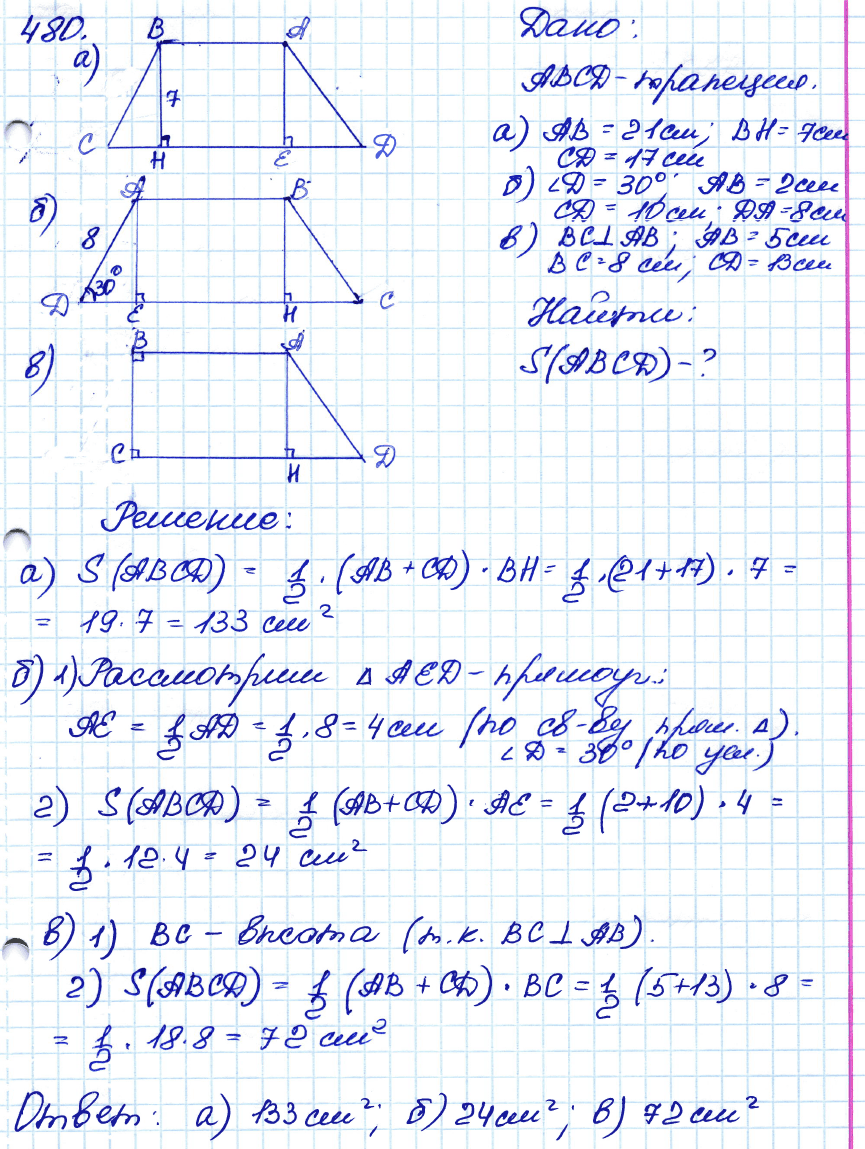 480.
Дано:
ABCD - трапеция.
а) AB = 21см; BH = 7см
CD = 17 см
б) ∠D = 30°; AB = 2см
CD = 10см; DA = 8см
в) BC⊥AB; AB = 5см
BC = 8 см; CD = 13см
Найти:
S(ABCD) - ?
а)
B A
7
C H E D
б)
A B
8
30°
D E H C
в)
B A
C H D
Решение:
а) S(ABCD) = 1/2 · (AB + CD) · BH = 1/2 · (21+17) · 7 =
= 19·7 = 133 см²
б) 1) Рассмотрим △ AED - прямоуг.:
AE = 1/2 AD = 1/2 · 8 = 4см (по св-ву прям. △).
∠D = 30° (по усл.)
2) S(ABCD) = 1/2 (AB+CD) · AE = 1/2 (2+10) · 4 =
= 1/2 · 12·4 = 24 см²
в) 1) BC - высота (т.к. BC⊥AB).
2) S(ABCD) = 1/2 (AB + CD) · BC = 1/2 (5+13) · 8 =
= 1/2 · 18·8 = 72 см²
Ответ: а) 133см²; б) 24см²; в) 72см²